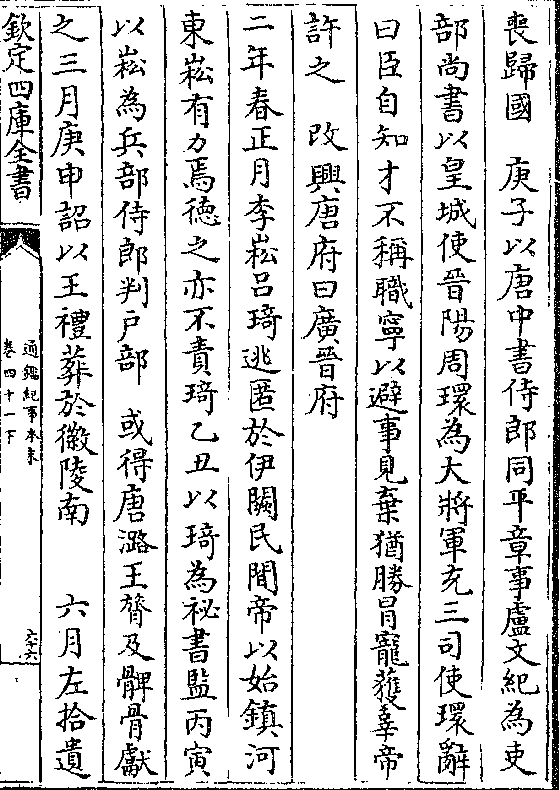 喪歸國　庚子以唐中書侍郎同平章事盧文紀為吏
部尚書以皇城使晉陽周環為大將軍充三司使環辭
曰臣自知才不稱職寧以避事見棄猶勝冒寵獲辜帝
許之　改興唐府曰廣晉府
二年春正月李崧呂琦逃匿於伊闕民間帝以始鎮河
東崧有力焉德之亦不責琦乙丑以琦為祕書監丙寅
以崧為兵部侍郎判戶部　或得唐潞王膂及髀骨獻
之三月庚申詔以王禮葬於徽陵南　　六月左拾遺
欽定四庫全書
通鑑紀事本末
卷四十一下
六十六